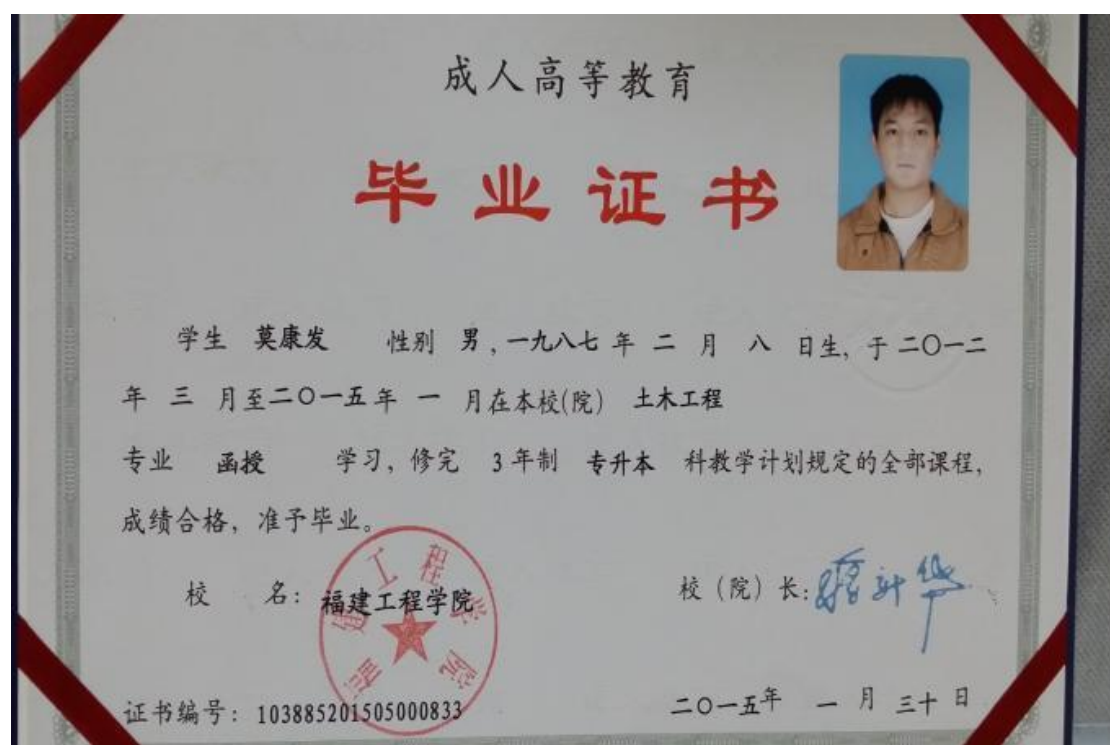 成人高等教育
毕业证书
学生 莫康发 性别 男,一九八七 年 二 月 八 日生, 于 二〇一二
年 三 月至二〇一五年 一 月在本校(院) 土木工程
专业 函授 学习, 修完 3 年制 专升本 科教学计划规定的全部课程,
成绩合格, 准予毕业。
校 名: 福建工程学院
福建工程学院
校(院)长: 蒋新华
证书编号: 103885201505000833
二〇一五年 一 月 三十 日